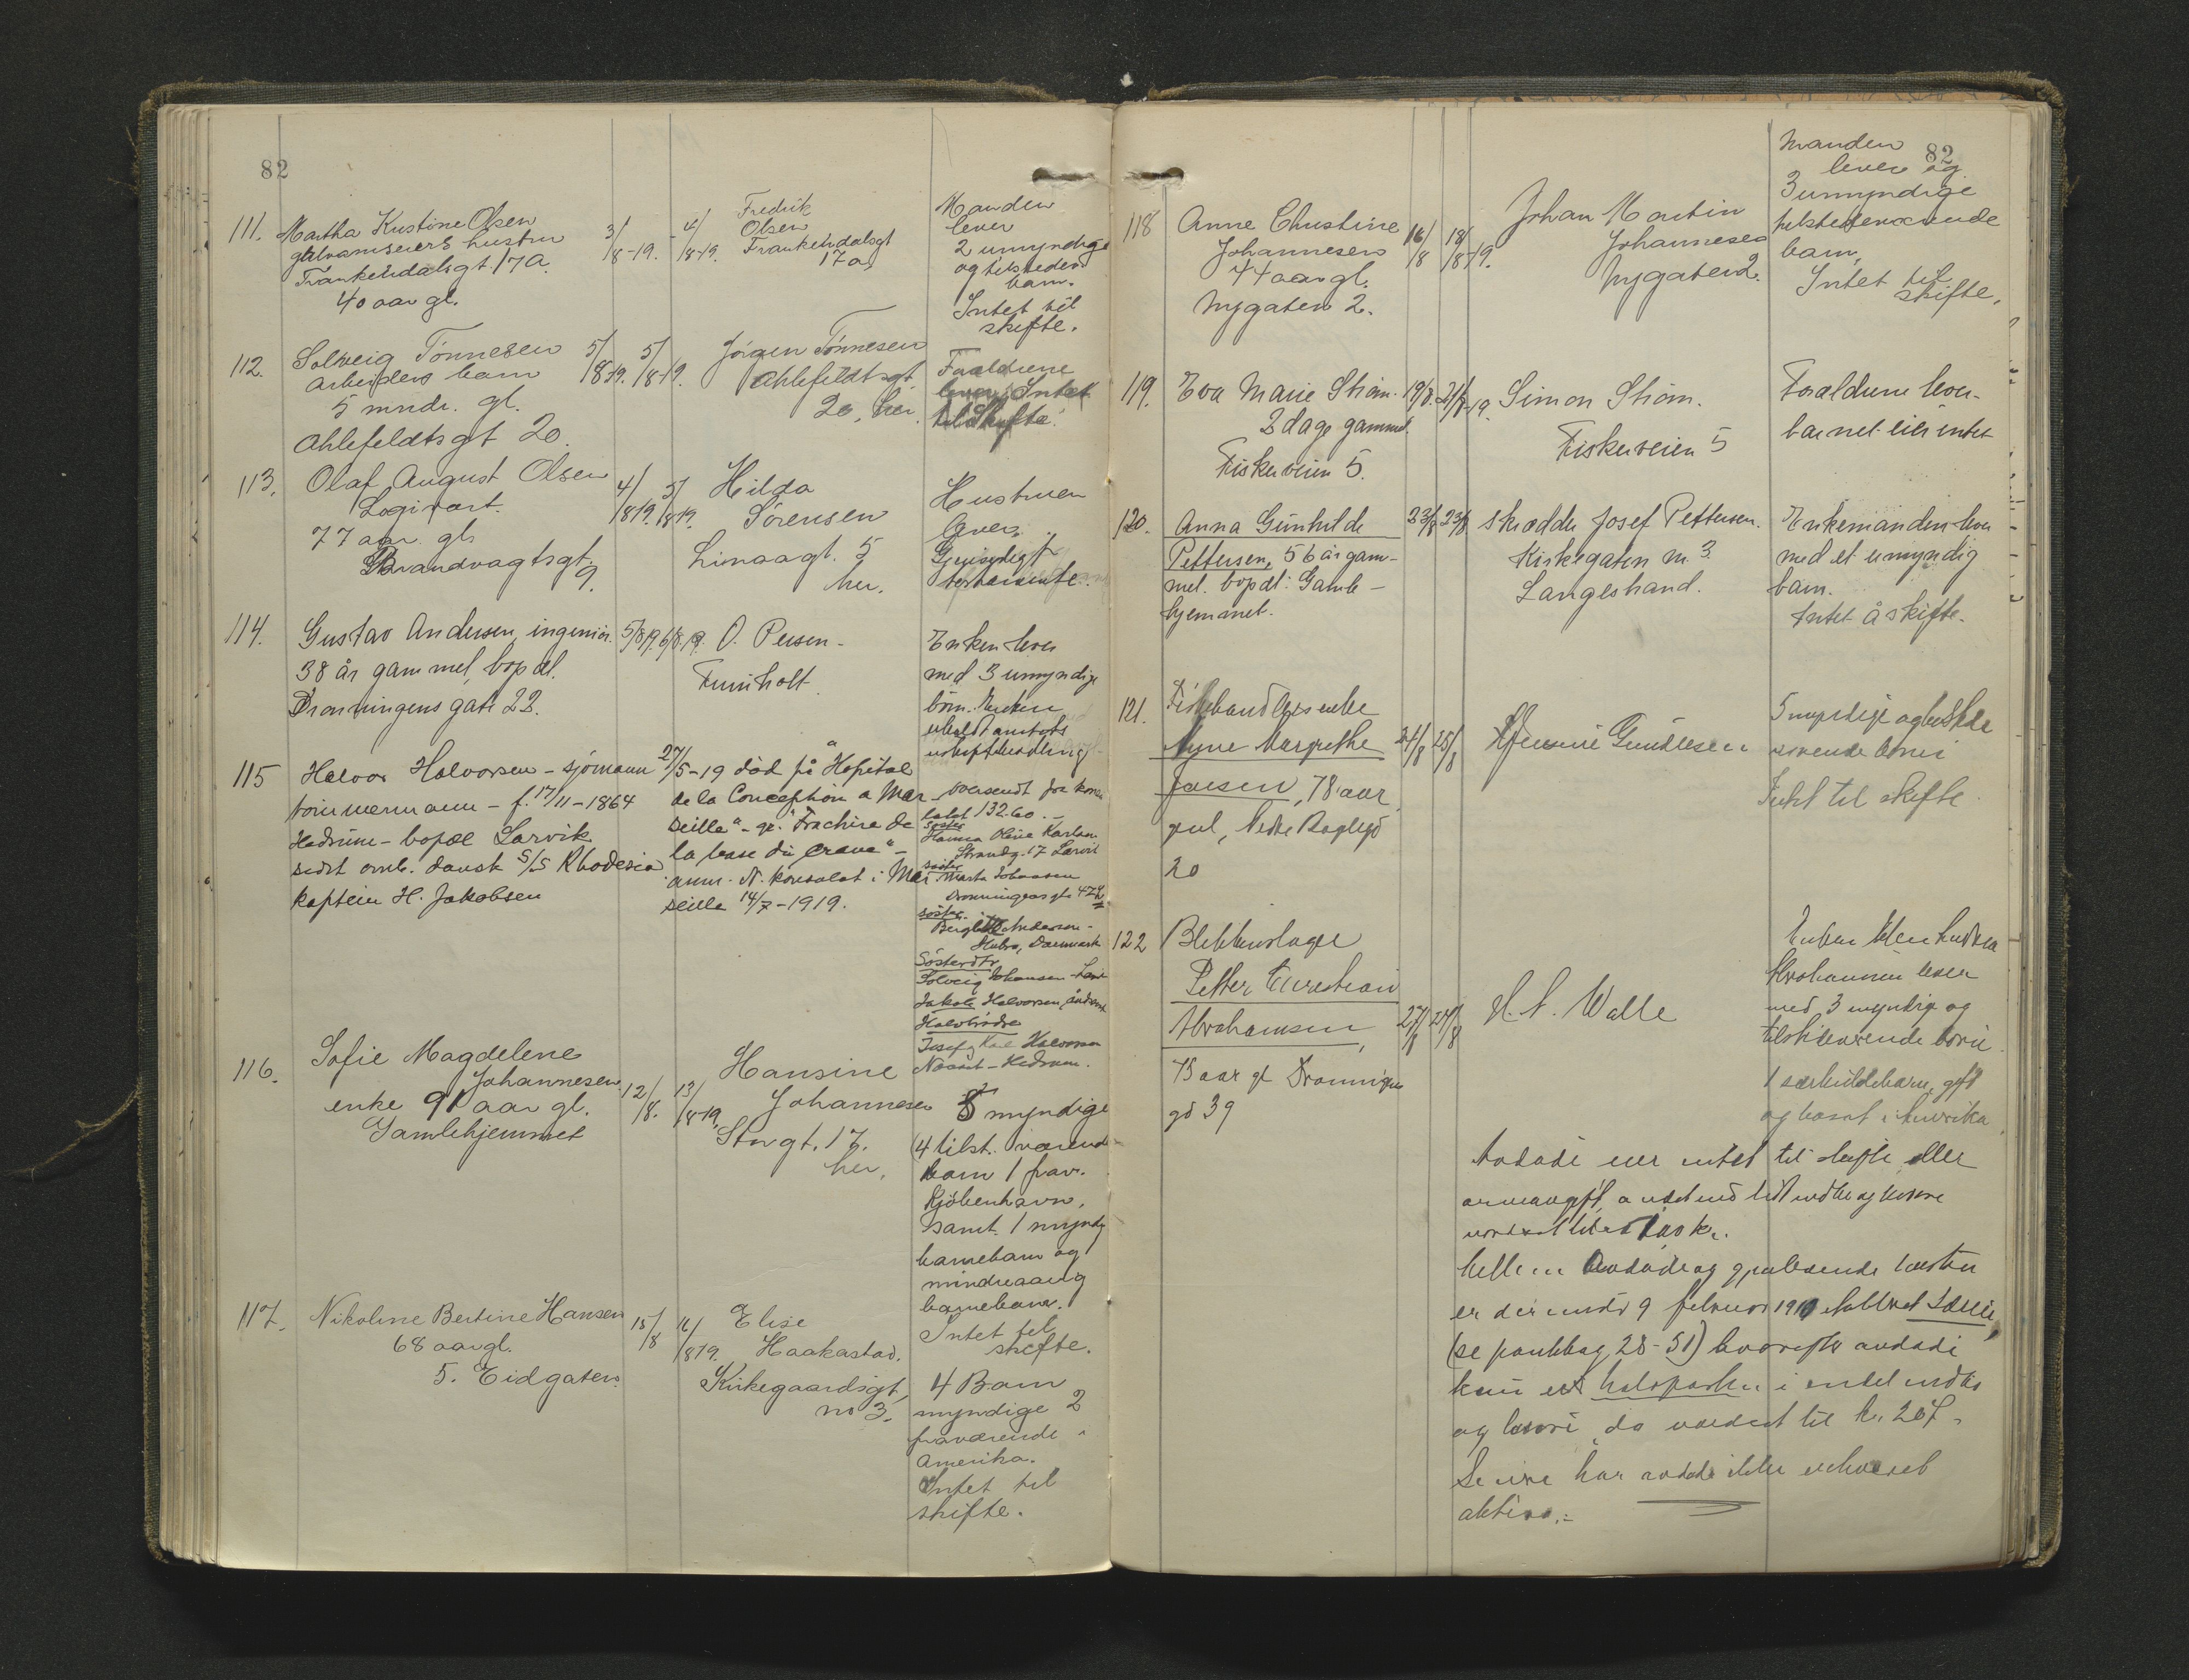 82
111.
Martha Kristine Olsen
galvanisers hustru
Frankendalsgt. 17A.
40 aar gl.
3/8-19.
4/8-19.
Fredrik
Olsen
Frankendalsgt
17a
Manden
lever
2 umyndige
og tilsteder
barn.
Intet til
skifte.
112.
Solveig Tønnesen
arbeiders barn
5 mndr. gl.
Ahlefeldtsgt 20.
5/8-19.
5/8-19.
Jörgen Tönnesen
Ahlefeldtsgt.
20, her.
Forældrene
lever. Intet
til Skifte.
113.
Olaf August Olsen
Logivært.
77 aar gl.
Brandvagtsgt.
9.
4/8 19.
5/8 19.
Hilda
Sörensen
Limaagt. 5
her.
Hustruen
lever.
Gjensidigt
testamente.
114.
Gustav Andersen, ingeniör.
38 år gammel, bopæl.
Dronningens gate 22.
5/8 19.
6/8 19.
O. Persen
Enken lever
med 3 umyndige
börn. Enken
115
Halvor Halvorsen - sjömann
tömmermann - f. 17/11-1864
Hedrum - bopæl Larvik
sidst omb. dansk S/S Rhodesia
kaptein H. Jakobsen
27/5-19 död på "Hopital
de la Conception a Mar-
seille" - gr. "Trachire de
la base du crane" -
anm. N. konsulat i Mar-
seille 14/7-1919.
oversendt fra konsu
latet 132.60. -
søster
Hanna Oline Karlsen
Strandg. 17 Larvik
søster
Marta Johansen
Dronningensgt. 47
søster
Andersen -
Danmark
Søsterdtr.
Solveig Johansen
Jakob Halvorsen,
Halvbrødre
Josef, Karl Halvorsen
- Hedrum.
116.
Sofie Magdelene
Johannesen
enke 91 aar gl.
Gamlehjemmet
12/8.
13/8 19.
Hansine
Johannesen
Storgt. 17.
her.
5 myndige
(4 tilst. værende
barn 1 frav.
Kjöbenhavn,
samt 1 myndig
barnebarn og
mindreaarig
barnebarn.
Intet til
skifte.
117.
Nikoline Bertine Hansen
68 aar gl.
5. Eidgaten.
15/8
16/8 19.
Elise
Haakastad.
Kirkegaardsgt,
no 3.
4 Barn
myndige 2
fraværende i
Amerika.
Intet til
skifte.
82
118
Anne Christine
Johannesen
44 aar gl.
Nygaten 2.
16/8
18/8-19.
Johan Martin
Johannesen
Nygaten 2.
Manden
lever og
3 umyndige
tilstedeværende
barn,
Intet til
skifte.
119.
Eva Marie Ström.
2 dage gammel.
Fiskerveien 5.
19/8.
21/8-19.
Simon Ström.
Fiskerveien 5
Forældrene lever.
barnet eier intet
120.
Anna Gunhilde
Pettersen, 56 år gam-
mel. bopæl: Gamle-
hjemmet.
23/8
23/8
skrædder Josef Pettersen.
Kirkegaten nr. 3.
Langestrand.
Enkemanden lever
med et umyndig
barn.
Intet å skifte.
121.
Fiskehandlers enke
Margrethe
78 aar
gml, Nedre Bøkeligd
20
24/8
25/8
Gundersen
5 myndige og tilstede
værende börn
Intet til skifte.
122
Blikkenslager
Petter Christian
Abrahamsen,
75 aar gl Dronningens
gd 39
27/8
27/8
H. A. Walle
Enken
Abrahamsen lever
med 3 myndige og
tilstedeværende börn.
1 særkuldsbarn, gift
og bosat i Amerika.
Avdøde eier intet til skifte eller
arveavgift, andet end lidt indbo og løsøre
Mellem avdøde og gjenlevende hustru
er der under 9 februar 1910
(se pantebog 28-51) hvorefter avdøde
kun eet halvparten i endel indbo
og løsøre, da værdsat til kr. 207.-
Senere har avdøde ikke erhvervet
aktiva.-